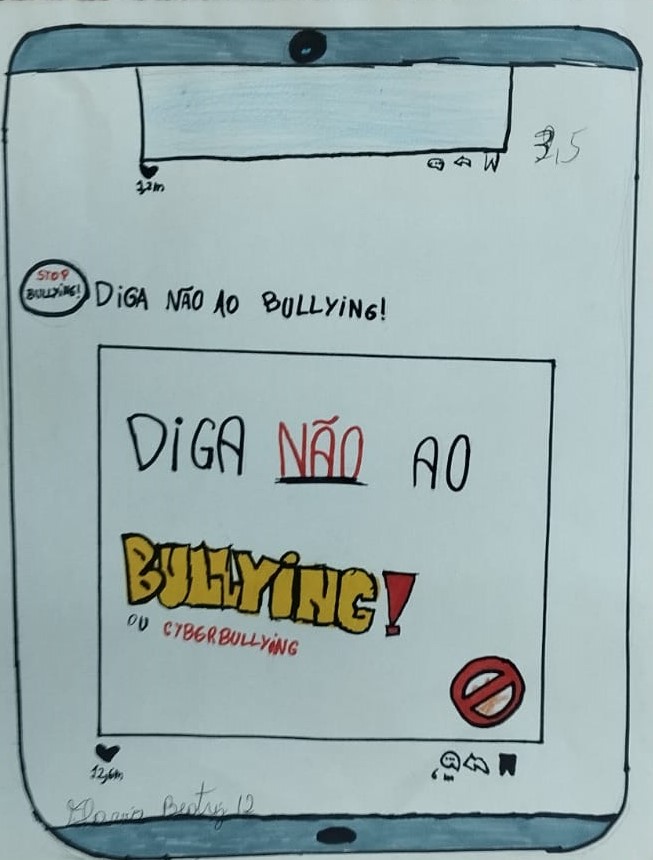 3,5
STOP
BULLYING!
DiGA NÃO AO BULLYiNG!
DiGA NÃO AO
BULLYiNG!
OU CYBERBULLYiNG
12,6m
Beatriz 12